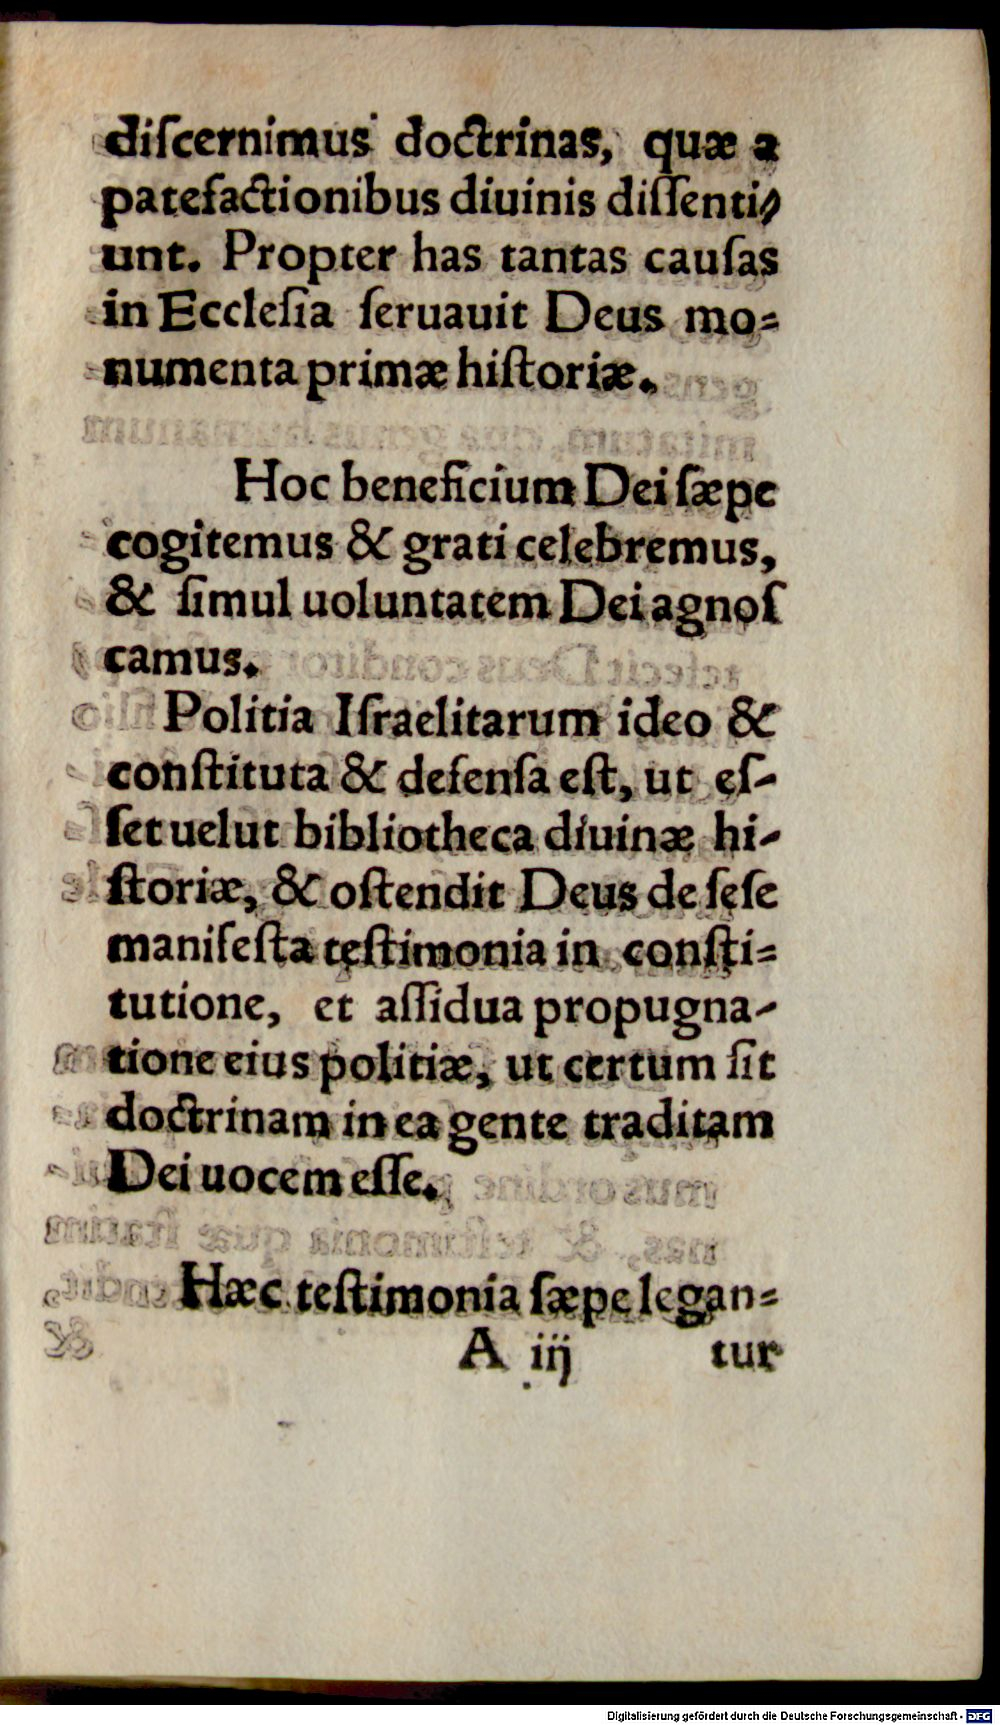 diſcernimus doctrinas, quæ a
patefactionibus diuinis diſſenti-
unt. Propter has tantas cauſas
in Eccleſia ſeruauit Deus mo=
numenta primæ hiſtoriæ.
Hoc beneficium Dei ſæpe
cogitemus & grati celebremus,
& ſimul uoluntatem Dei agnoſ
camus.
Politia Iſraelitarum ideo &
conſtituta & defenſa eſt, ut eſ-
ſet uelut bibliotheca diuinæ hi-
ſtoriæ, & oſtendit Deus de ſeſe
manifeſta teſtimonia in conſti=
tutione, et aſſidua propugna-
tione eius politiæ, ut certum ſit
doctrinam in ea gente traditam
Dei uocem eſſe.
Hæc teſtimonia ſæpe legan=
A iij tur
Digitalisierung gefördert durch die Deutsche Forschungsgemeinschaft - DFG